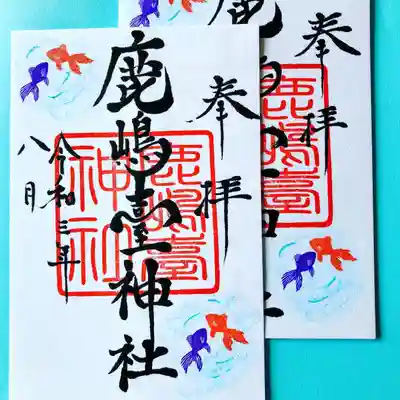 奉拝
鹿嶋臺神社
鹿嶋臺
神社
令和三年
八月
奉拝
鹿嶋臺